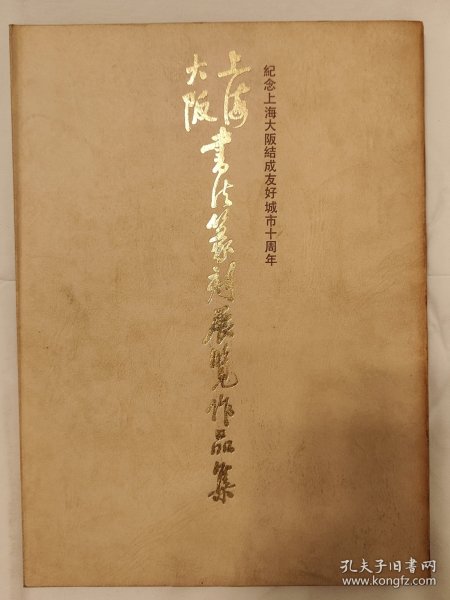 紀念上海大阪結成友好城市十周年
上海
大阪
书法篆刻展覽作品集
孔夫子旧书网
www.kongfz.com